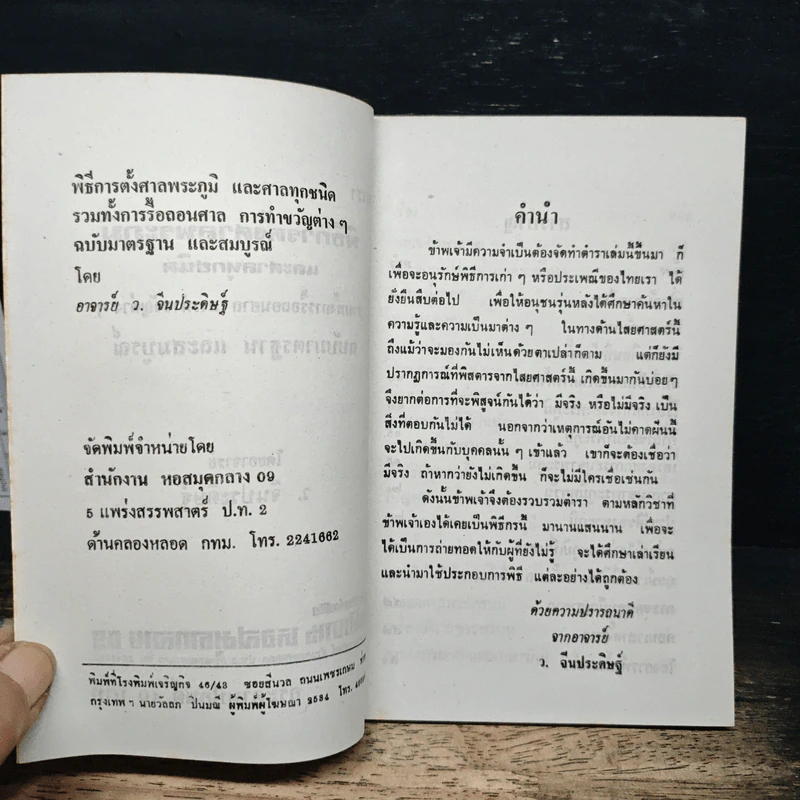 พิธีการตั้งศาลพระภูมิ และศาลทุกชนิด
รวมทั้งการรื้อถอนศาล การทำขวัญต่าง ๆ
ฉบับมาตรฐาน และสมบูรณ์
โดย
อาจารย์ ว. จีนประดิษฐ์
จัดพิมพ์จำหน่ายโดย
สำนักงาน หอสมุดกลาง 09
5 แพร่งสรรพสาตร์ ป.ท. 2
ด้านคลองหลอด กทม. โทร. 2241662
พิมพ์ที่โรงพิมพ์เจริญกิจ 46/43 ซอยสีนวล ถนนเพชรเกษม
กรุงเทพ ฯ นายวัลลภ ปิ่นมณี ผู้พิมพ์ผู้โฆษณา 2534 โทร.
คำนำ
ข้าพเจ้ามีความจำเป็นต้องจัดทำตำราเล่มนี้ขึ้นมา ก็
เพื่อจะอนุรักษ์พิธีการเก่า ๆ หรือประเพณีของไทยเรา ได้
ยั่งยืนสืบต่อไป เพื่อให้อนุชนรุ่นหลังได้ศึกษาค้นหาใน
ความรู้และความเป็นมาต่าง ๆ ในทางด้านไสยศาสตร์นี้
ถึงแม้ว่าจะมองกันไม่เห็นด้วยตาเปล่าก็ตาม แต่ก็ยังมี
ปรากฏการณ์ที่พิสดารจากไสยศาสตร์นี้ เกิดขึ้นมากันบ่อยๆ
จึงยากต่อการที่จะพิสูจน์กันได้ว่า มีจริง หรือไม่มีจริง เป็น
สิ่งที่ตอบกันไม่ได้ นอกจากว่าเหตุการณ์อันไม่คาดฝันนี้
จะไปเกิดขึ้นกับบุคคลนั้น ๆ เข้าแล้ว เขาก็จะต้องเชื่อว่า
มีจริง ถ้าหากว่ายังไม่เกิดขึ้น ก็จะไม่มีใครเชื่อเช่นกัน
ดังนั้นข้าพเจ้าจึงต้องรวบรวมตำรา ตามหลักวิชาที่
ข้าพเจ้าเองได้เคยเป็นพิธีกรนี้ มานานแสนนาน เพื่อจะ
ได้เป็นการถ่ายทอดให้กับผู้ที่ยังไม่รู้ จะได้ศึกษาเล่าเรียน
และนำมาใช้ประกอบการพิธี แต่ละอย่างได้ถูกต้อง
ด้วยความปรารถนาดี
จากอาจารย์
ว. จีนประดิษฐ์